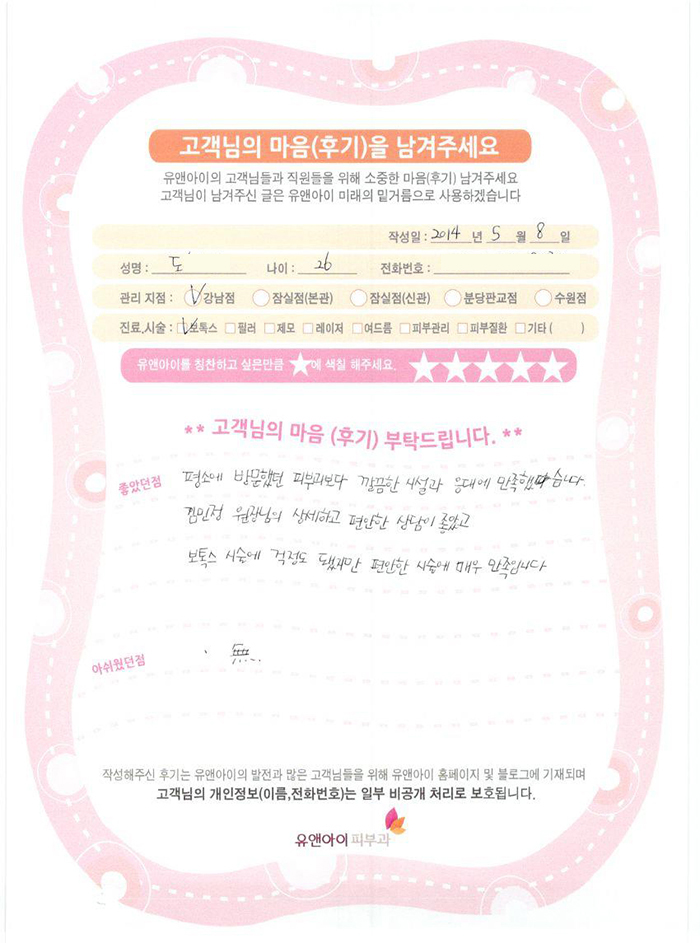 고객님의 마음(후기)을 남겨주세요
유앤아이의 고객님들과 직원들을 위해 소중한 마음(후기) 남겨주세요
고객님이 남겨주신 글은 유앤아이 미래의 밑거름으로 사용하겠습니다
작성일 : 2014 년 5 월 8 일
성명 : 도 나이 : 26 전화번호 :
관리 지점 : 강남점 잠실점(본관) 잠실점(신관) 분당판교점 수원점
진료.시술 : 보톡스 필러 제모 레이저 여드름 피부관리 피부질환 기타 ( )
유앤아이를 칭찬하고 싶은만큼 ★에 색칠 해주세요. ★★★★★
** 고객님의 마음 (후기) 부탁드립니다. **
좋았던점 평소에 방문했던 피부과보다 깔끔한 시설과 응대에 만족했습니다.
김민정 원장님의 상세하고 편안한 상담이 좋았고
보톡스 시술에 걱정도 됐지만 편안한 시술에 매우 만족입니다
아쉬웠던점 · 無.
작성해주신 후기는 유앤아이의 발전과 많은 고객님들을 위해 유앤아이 홈페이지 및 블로그에 기재되며
고객님의 개인정보(이름,전화번호)는 일부 비공개 처리로 보호됩니다.
유앤아이 피부과